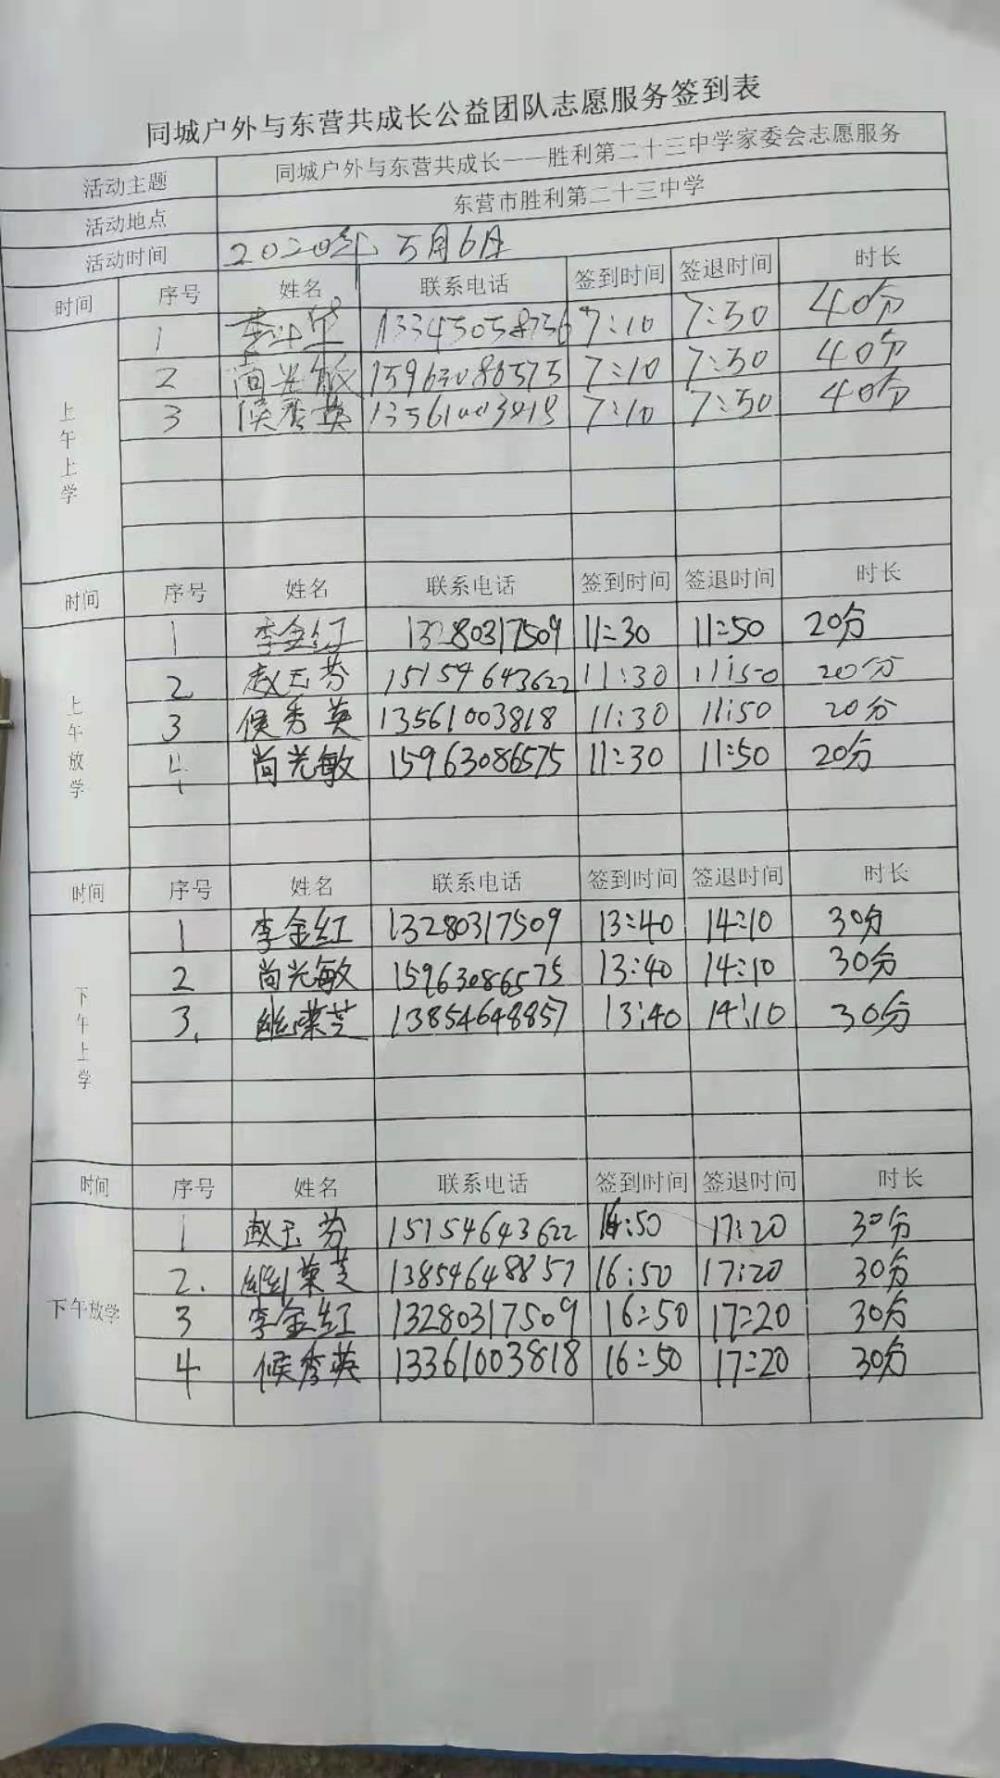 同城户外与东营共成长公益团队志愿服务签到表
活动主题 同城户外与东营共成长——胜利第二十三中学家委会志愿服务
活动地点 东营市胜利第二十三中学
活动时间 2020年 5月6日
时间 序号 姓名 联系电话 签到时间 签退时间 时长
上午上学
1 13345058736 7:10 7:50 40分
2 尚光敏 15963086575 7:10 7:50 40分
3 侯秀英 13561003818 7:10 7:50 40分
时间 序号 姓名 联系电话 签到时间 签退时间 时长
上午放学
1 李金红 13280317509 11:30 11:50 20分
2 赵玉芬 15154643622 11:30 11:50 20分
3 候秀英 13561003818 11:30 11:50 20分
4 尚光敏 15963086575 11:30 11:50 20分
时间 序号 姓名 联系电话 签到时间 签退时间 时长
下午上学
1 李金红 13280317509 13:40 14:10 30分
2 尚光敏 15963086575 13:40 14:10 30分
3. 13854648857 13:40 14:10 30分
时间 序号 姓名 联系电话 签到时间 签退时间 时长
下午放学
1 赵玉芬 15154643622 16:50 17:20 30分
2. 13854648857 16:50 17:20 30分
3 李金红 13280317509 16:50 17:20 30分
4 候秀英 13361003818 16:50 17:20 30分